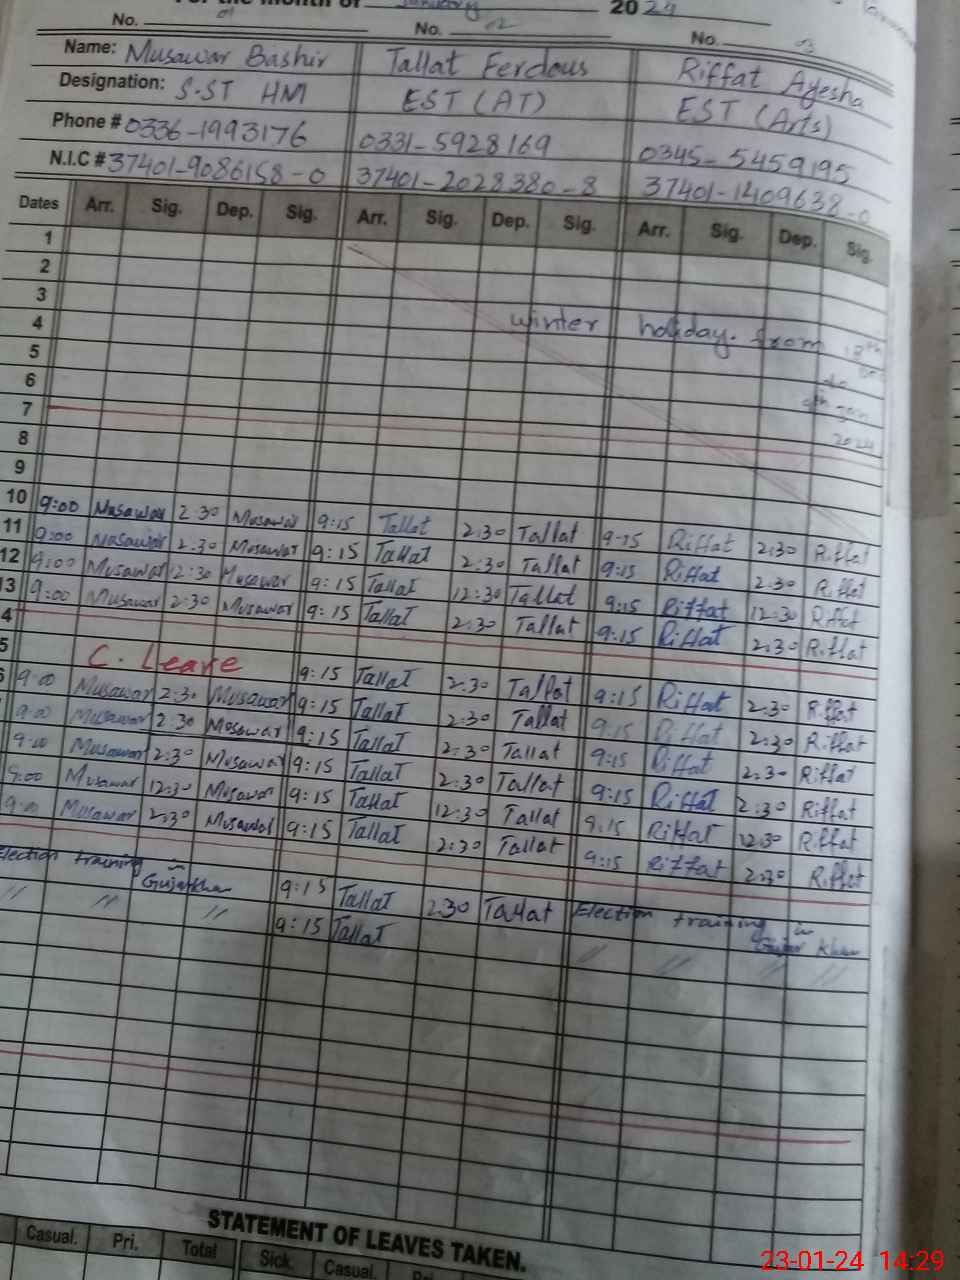 For the month of January 2024
No. 01 No. 02 No. 03
Name: Musawar Bashir Tallat Ferdous Riffat Ayesha
Designation: S.ST HM EST (AT) EST (Arts)
Phone # 0336-1993176 0331-5928169 0345-5459195
N.I.C # 37401-9086158-0 37401-2028380-8 37401-1409638-0
Dates Arr. Sig. Dep. Sig. Arr. Sig. Dep. Sig. Arr. Sig. Dep. Sig.
1
2
3
4 winter holiday. from 18th
5
6 9th Jan
7 2024
8
9
10 9:00 Musawar 2:30 Musawar 9:15 Tallat 2:30 Tallat 9:15 Riffat 2:30 Riffat
11 9:00 Musawar 2:30 Musawar 9:15 Tallat 2:30 Tallat 9:15 Riffat 2:30 Riffat
12 9:00 Musawar 12:30 Musawar 9:15 Tallat 12:30 Tallat 9:15 Riffat 12:30 Riffat
13 9:00 Musawar 2:30 Musawar 9:15 Tallat 2:30 Tallat 9:15 Riffat 2:30 Riffat
4
5 C. Leave 9:15 Tallat 2:30 Tallat 9:15 Riffat 2:30 Riffat
9:00 Musawar 2:30 Musawar 9:15 Tallat 2:30 Tallat 9:15 Riffat 2:30 Riffat
9:00 Musawar 2:30 Musawar 9:15 Tallat 2:30 Tallat 9:15 Riffat 2:30 Riffat
9:00 Musawar 2:30 Musawar 9:15 Tallat 2:30 Tallat 9:15 Riffat 2:30 Riffat
9:00 Musawar 12:30 Musawar 9:15 Tallat 12:30 Tallat 9:15 Riffat 12:30 Riffat
9:00 Musawar 2:30 Musawar 9:15 Tallat 2:30 Tallat 9:15 Riffat 2:30 Riffat
Election training in Gujarkhan 9:15 Tallat 2:30 Tallat Election training in Gujar Khan
〃 〃 〃 9:15 Tallat 〃 〃 〃 〃
STATEMENT OF LEAVES TAKEN.
Casual. Pri. Total Sick. Casual. Pri.
23-01-24 14:29